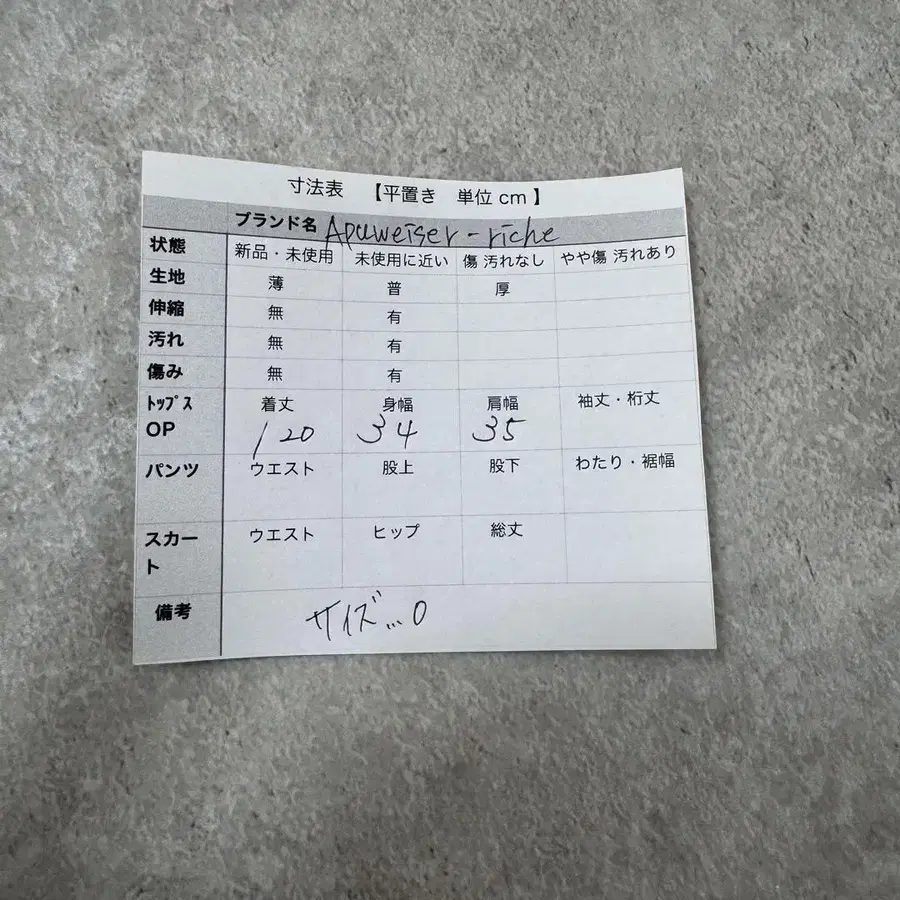 寸法表 【平置き 単位 cm】
ブランド名 Apuweiser-riche
状態 新品・未使用 未使用に近い 傷 汚れなし やや傷 汚れあり
生地 薄 普 厚
伸縮 無 有
汚れ 無 有
傷み 無 有
ﾄｯﾌﾟｽ 着丈 身幅 肩幅 袖丈・桁丈
OP 120 34 35
パンツ ウエスト 股上 股下 わたり・裾幅
スカー ウエスト ヒップ 総丈
ト
備考 サイズ…0